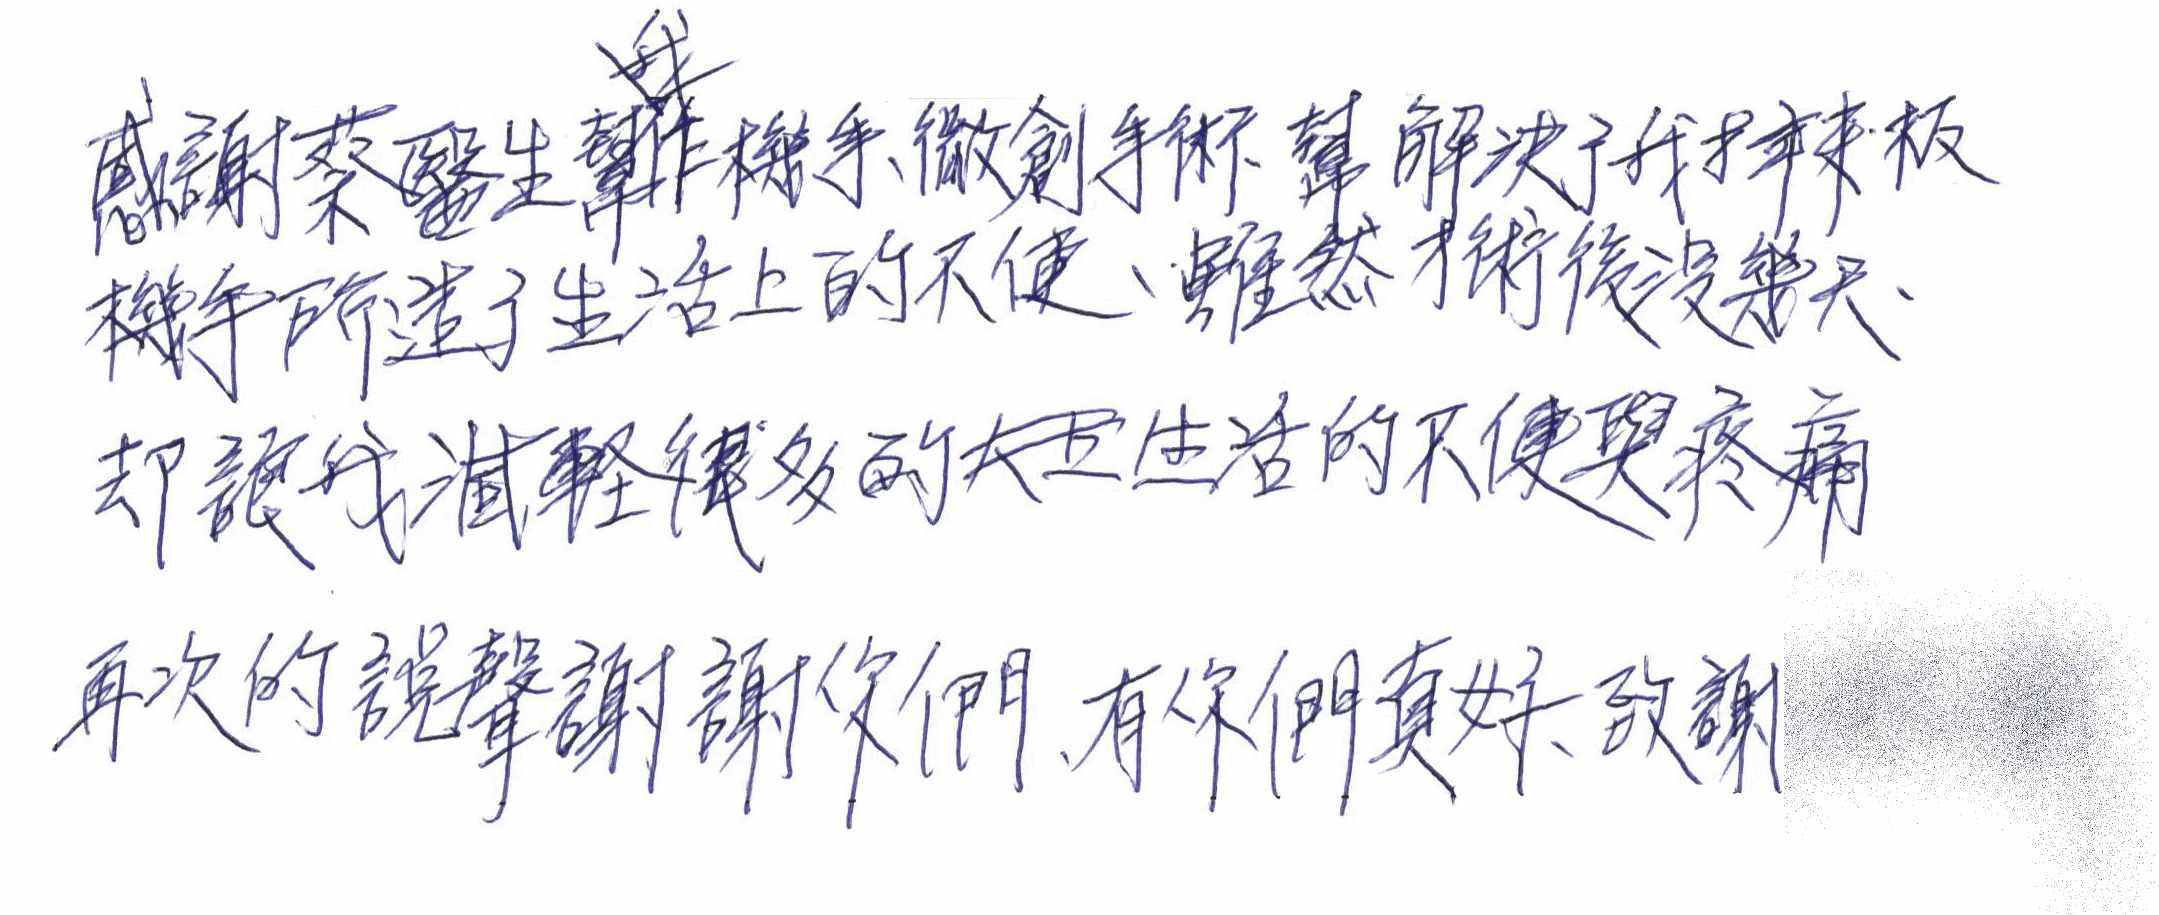 感謝蔡醫生幫我作機手、微創手術、幫解決了我才辣板
機手所造了生活上的不便、雖然才術後沒幾天、
却讓我減輕很多的生活的不便與疼痛
再次的說聲謝謝你們、有你們真好、致謝